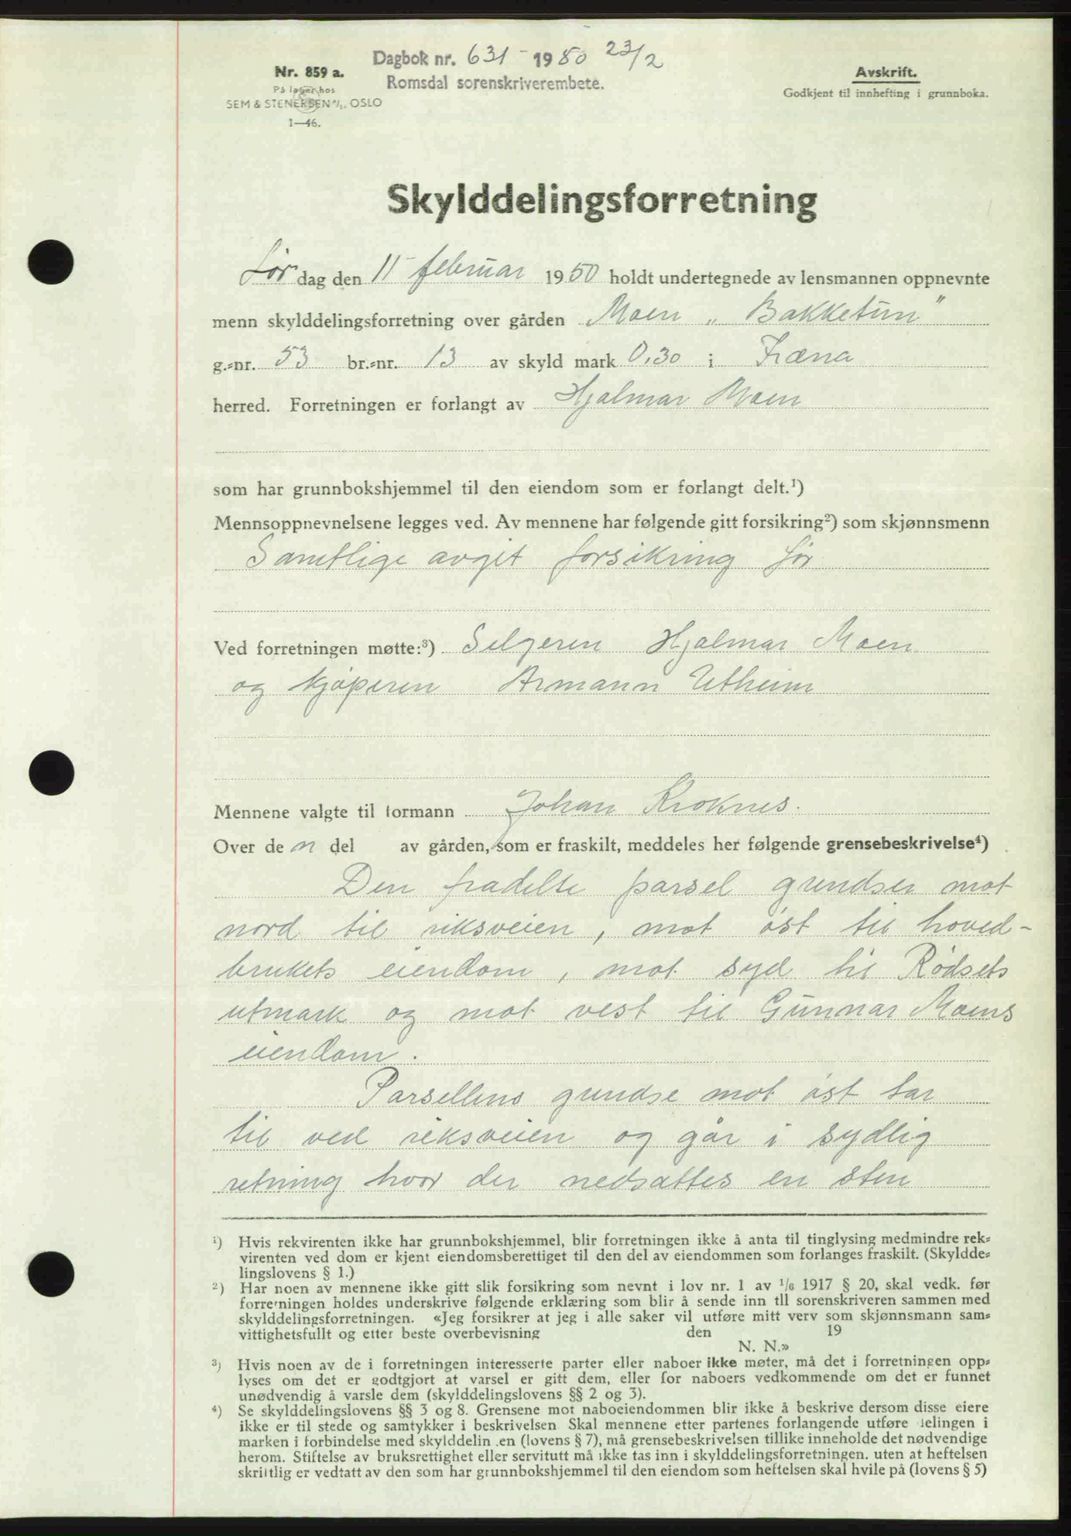 Dagbok nr. 631 - 1950 23/2
Romsdal sorenskriverembete.
Nr. 859 a.
På lager hos
SEM & STENERSEN A/S, OSLO
1—46.
Avskrift.
Godkjent til innhefting i grunnboka.
Skylddelingsforretning
Lør dag den 11 februar 1950 holdt undertegnede av lensmannen oppnevnte
menn skylddelingsforretning over gården Moen „ Bakketun "
g.-nr. 53 br.-nr. 13 av skyld mark 0,30 i Fræna
herred. Forretningen er forlangt av Hjalmar Moen
som har grunnbokshjemmel til den eiendom som er forlangt delt.¹)
Mennsoppnevnelsene legges ved. Av mennene har følgende gitt forsikring²) som skjønnsmenn
Samtlige avgit forsikring før
Ved forretningen møtte:³) Selgeren Hjalmar Moen
og kjøperen Armann Utheim
Mennene valgte til formann Johan Kroknes.
Over den del av gården, som er fraskilt, meddeles her følgende grensebeskrivelse⁴)
Den fradelte parsel grundser mot
nord til riksveien, mot øst til hoved-
brukets eiendom, mot syd til Rødsets
utmark og mot vest til Gunnar Moens
eiendom.
Parsellens grundse mot øst tar
til ved riksveien og går i sydlig
retning hvor der nedsattes en sten
¹) Hvis rekvirenten ikke har grunnbokshjemmel, blir forretningen ikke å anta til tinglysing medmindre rek-
virenten ved dom er kjent eiendomsberettiget til den del av eiendommen som forlanges fraskilt. (Skyldde-
lingslovens § 1.)
²) Har noen av mennene ikke gitt slik forsikring som nevnt i lov nr. 1 av 1/6 1917 § 20, skal vedk. før
forretningen holdes underskrive følgende erklæring som blir å sende inn til sorenskriveren sammen med
skylddelingsforretningen. «Jeg forsikrer at jeg i alle saker vil utføre mitt verv som skjønnsmann sam-
vittighetsfullt og etter beste overbevisning den 19
N. N.»
³) Hvis noen av de i forretningen interesserte parter eller naboer ikke møter, må det i forretningen opp-
lyses om det er godtgjort at varsel er gitt dem, eller for naboers vedkommende om det er funnet
unødvendig å varsle dem (skylddelingslovens §§ 2 og 3).
⁴) Se skylddelingslovens §§ 3 og 8. Grensene mot naboeiendommen blir ikke å beskrive dersom disse eiere
ikke er til stede og samtykker i beskrivelsen Skal mennene etter partenes forlangende utføre delingen i
marken i forbindelse med skylddelingen (lovens § 7), må grensebeskrivelsen tillike inneholde det nødvendige
herom. Stiftelse av bruksrettighet eller servitutt må ikke tas inn i skylddelingsforretningen. uten at heftelsen
skriftlig er vedtatt av den som har grunnbokshjemmel til den eiendom som heftelsen skal hvile på (lovens § 5)